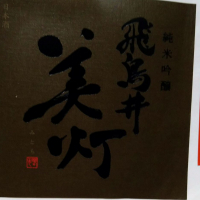 純米吟醸
飛鳥井
美灯